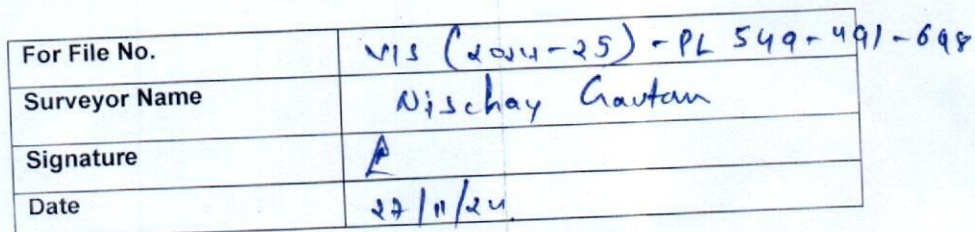 For File No. VIS (2024-25) - PL 549-491-698
Surveyor Name Nischay Gautam
Signature
Date 27/11/24